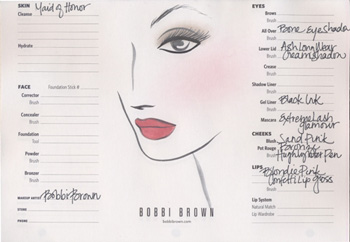 SKIN
Maid of Honor
Cleanse
Hydrate
FACE
Foundation Stick #
Corrector
Brush
Concealer
Brush
Foundation
Tool
Powder
Brush
Bronzer
Brush
MAKEUP ARTIST Bobbi Brown
STORE
PHONE
BOBBI BROWN
bobbibrown.com
EYES
Brows
Brush
All Over Bone Eyeshado
Brush
Lower Lid Ash Long Wear
Brush Cream shadow
Crease
Brush
Shadow Liner
Brush
Gel Liner Black Ink
Brush
Mascara Extreme Lash
glamour
CHEEKS
Blush Sand Pink
Brush
Pot Rouge
Brush Highlighter Pen
LIPS
Blondie Pink
Brush Lip Gloss
Lip System
Natural Match
Lip Wardrobe